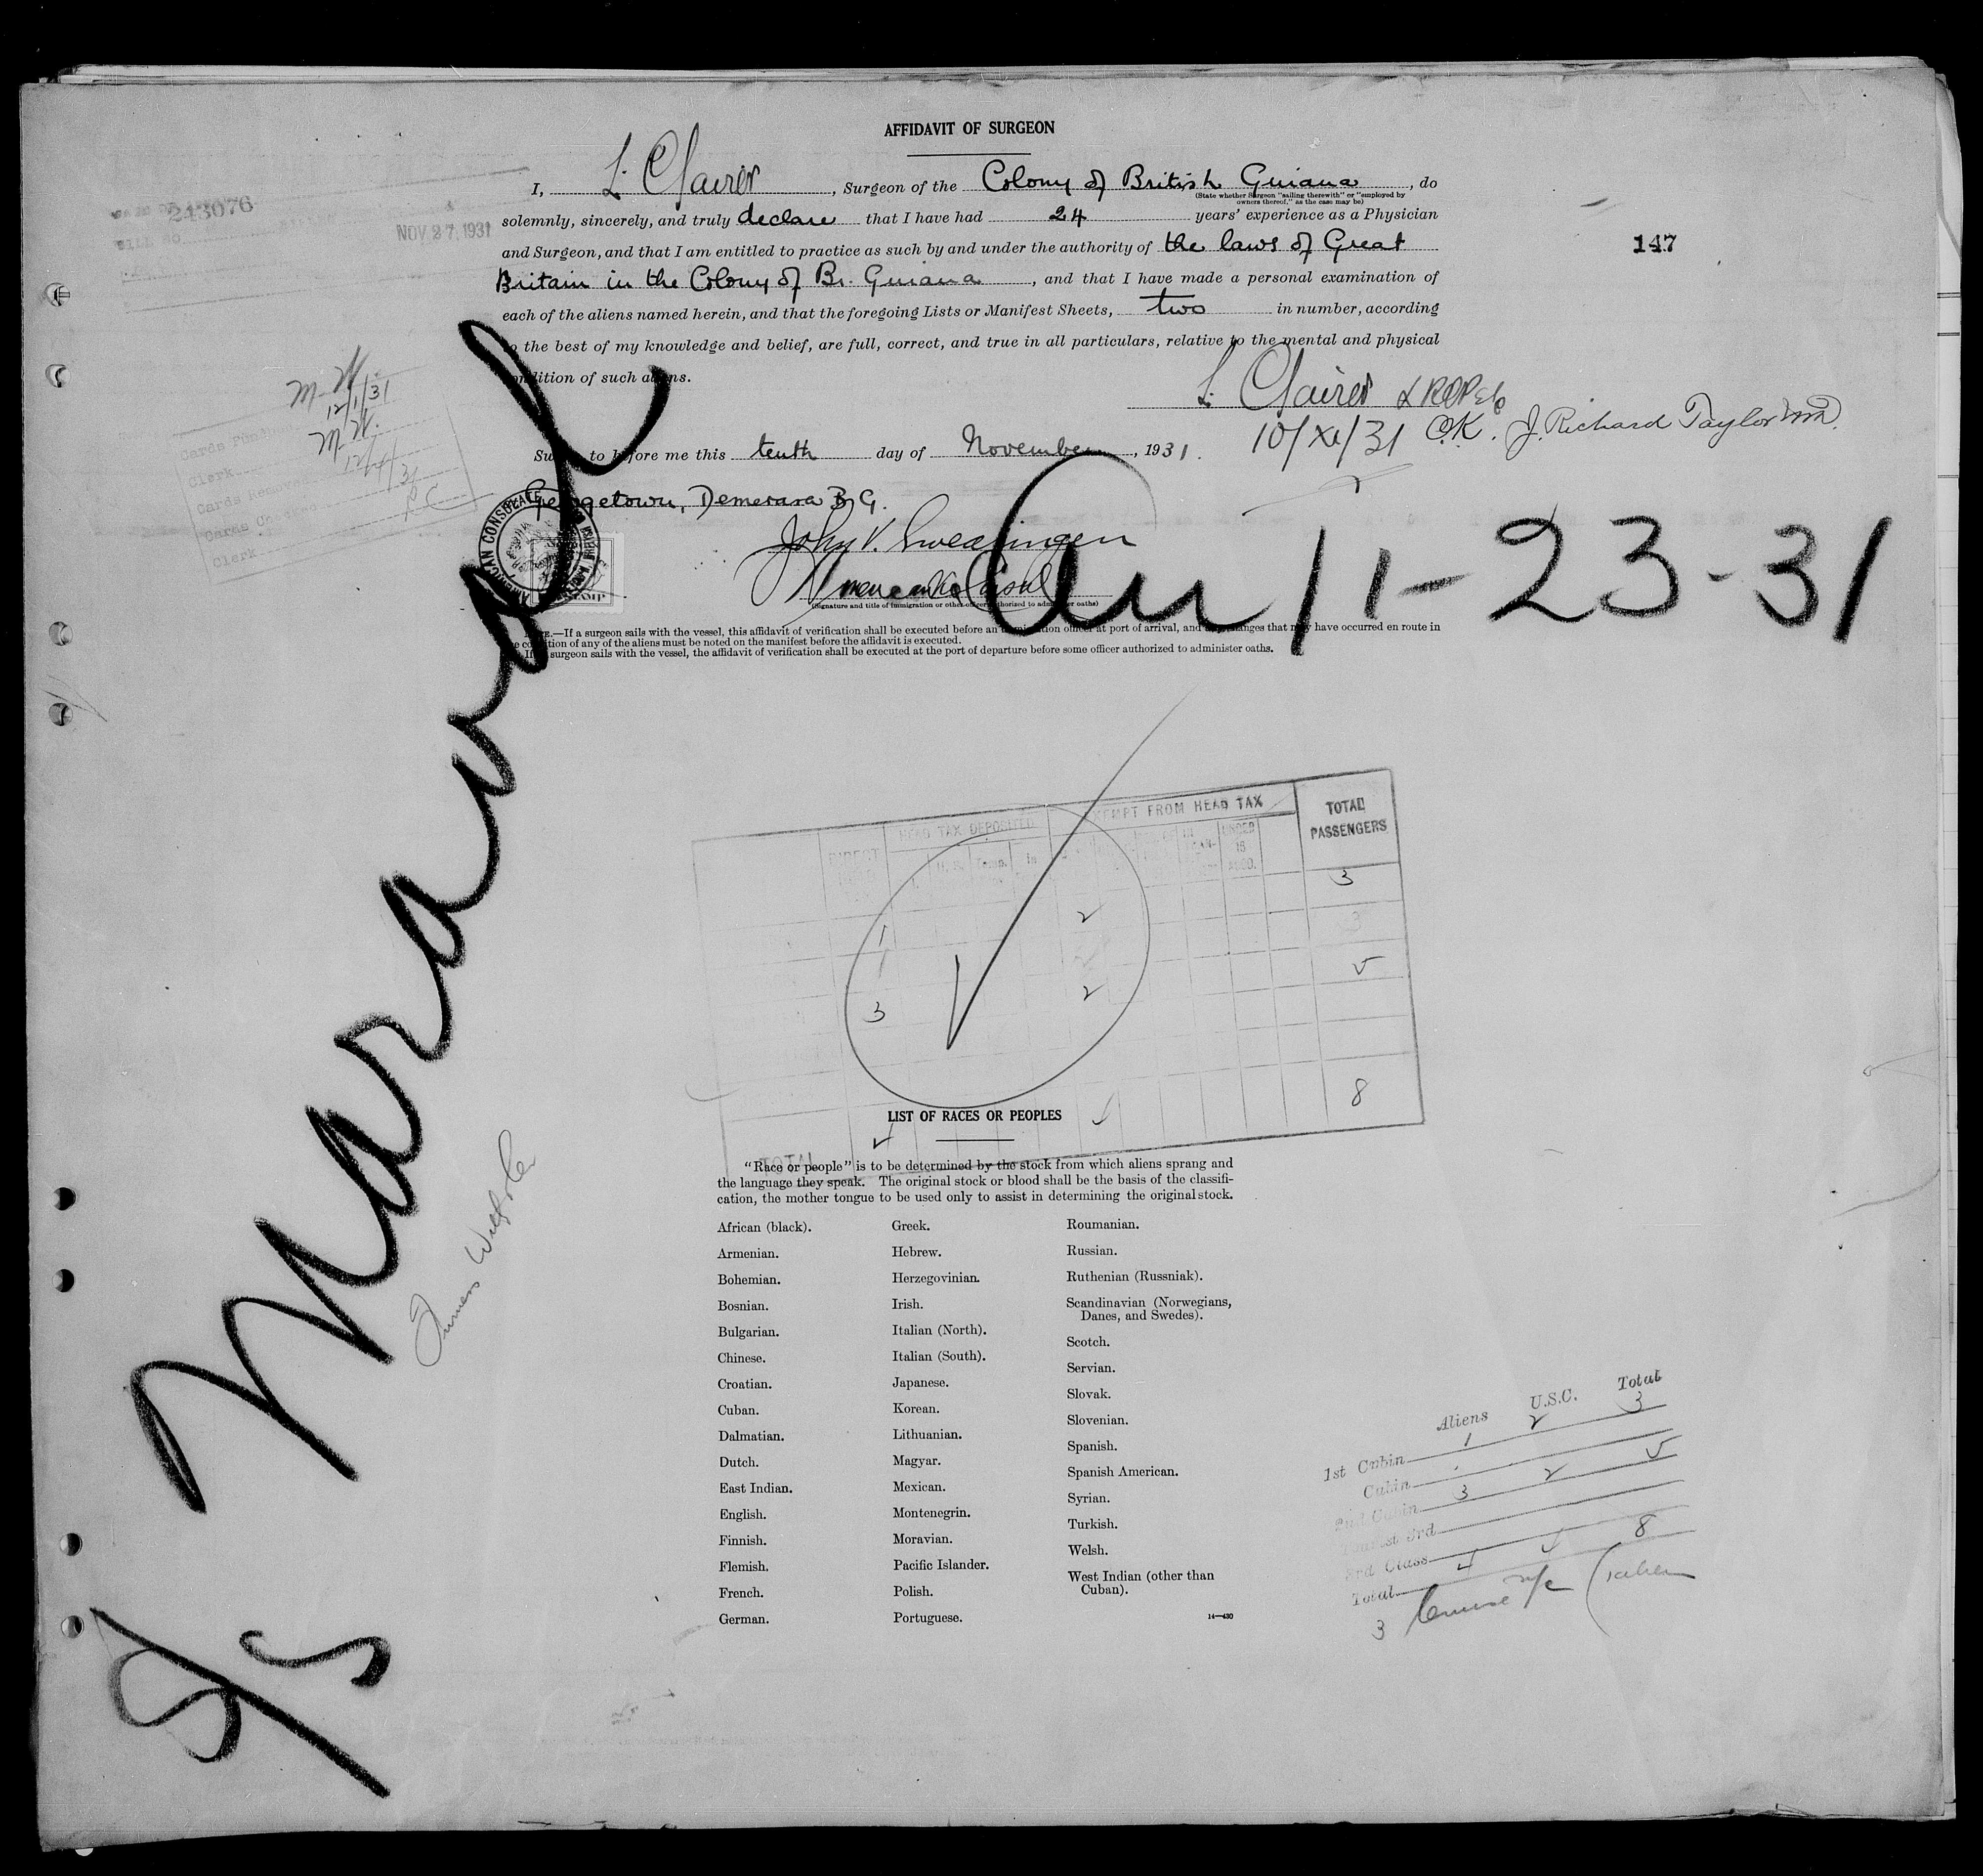 AFFIDAVIT OF SURGEON
I, , Surgeon of the Colony of British Guiana, do
(State whether Surgeon "sailing therewith" or "employed by
owners thereof," as the case may be)
solemnly, sincerely, and truly declare that I have had 24 years' experience as a Physician
and Surgeon, and that I am entitled to practice as such by and under the authority of the laws of Great
Britain in the Colony of Br. Guiana, and that I have made a personal examination of
each of the aliens named herein, and that the foregoing Lists or Manifest Sheets, two in number, according
the best of my knowledge and belief, are full, correct, and true in all particulars, relative to the mental and physical
condition of such aliens.
243076
NOV 27, 1931
147
M-W.
12/1/31
M-W.
12/4/31
Cards
Clerk
Cards Removed
Cards
Clerk
10/XI/31 O.K. J. Richard Taylor MD.
to before me this tenth day of November, 1931.
Georgetown, Demerara B.G.
AMERICAN CONSULATE
John V. Swearingen
American Consul
(Signature and title of immigration or other officer authorized to administer oaths)
An 11-23-31
NOTE.—If a surgeon sails with the vessel, this affidavit of verification shall be executed before an immigration officer at port of arrival, and any changes that may have occurred en route in
the condition of any of the aliens must be noted on the manifest before the affidavit is executed.
If surgeon sails with the vessel, the affidavit of verification shall be executed at the port of departure before some officer authorized to administer oaths.
S/S Maraval
Furness
HEAD TAX DEPOSITED
EXEMPT FROM HEAD TAX
TOTAL
PASSENGERS
DIRECT
UNDER
16
3
1 2
3
1
5
3 2
8
TOTAL
LIST OF RACES OR PEOPLES
"Race or people" is to be determined by the stock from which aliens sprang and
the language they speak. The original stock or blood shall be the basis of the classifi-
cation, the mother tongue to be used only to assist in determining the original stock.
African (black).
Armenian.
Bohemian.
Bosnian.
Bulgarian.
Chinese.
Croatian.
Cuban.
Dalmatian.
Dutch.
East Indian.
English.
Finnish.
Flemish.
French.
German.
Greek.
Hebrew.
Herzegovinian.
Irish.
Italian (North).
Italian (South).
Japanese.
Korean.
Lithuanian.
Magyar.
Mexican.
Montenegrin.
Moravian.
Pacific Islander.
Polish.
Portuguese.
Roumanian.
Russian.
Ruthenian (Russniak).
Scandinavian (Norwegians,
Danes, and Swedes).
Scotch.
Servian.
Slovak.
Slovenian.
Spanish.
Spanish American.
Syrian.
Turkish.
Welsh.
West Indian (other than
Cuban).
14—430
Aliens U.S.C. Total
1st Cabin 1 2 3
Cabin
2nd Cabin 3 2 5
Tourist 3rd
3rd Class
Total 4 4 8
3